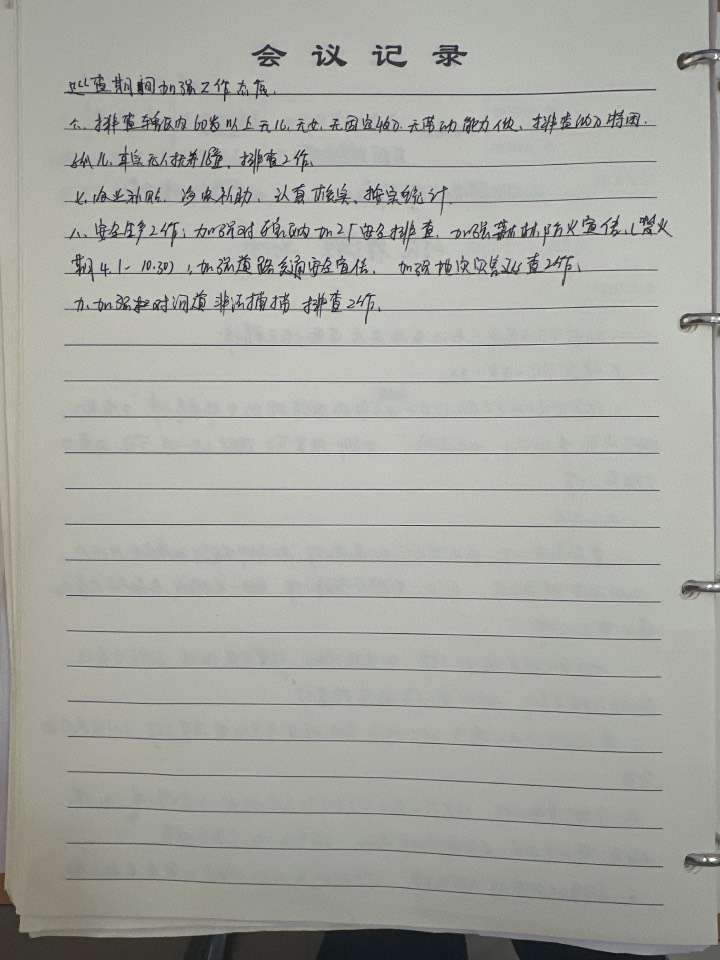 会议记录
巡查期间加强工作态度.
六、排查辖区内60岁以上无儿、无女、无固定收入、无劳动能力人员、排查幼儿特困.
孤儿、单亲无人抚养儿童、排查工作.
七、农业补贴、冷皮补助、认真核实、按实统计.
八、安全生产工作:加强对辖区内加工厂安全排查、加强森林防火宣传、(禁火
期4.1-10.30),加强道路交通安全宣传、加强地质灾害巡查工作、
九、加强对河道非法捕捞排查工作、